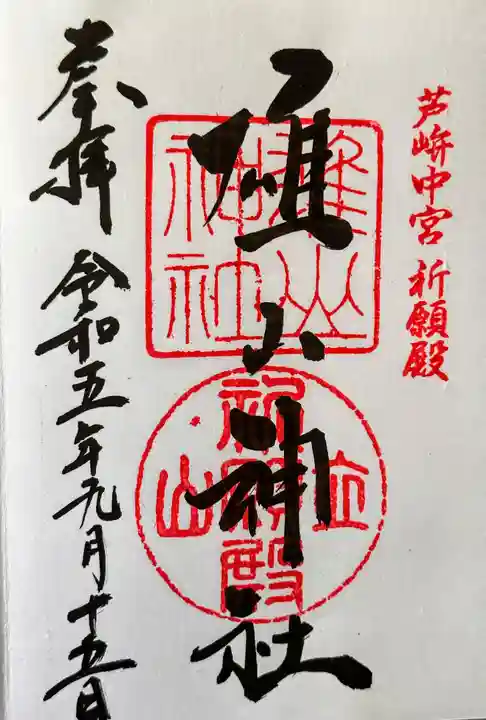 芦峅中宮 祈願殿
雄山神社
雄山神社
立山
祈願殿
奉拝 令和五年九月十五日